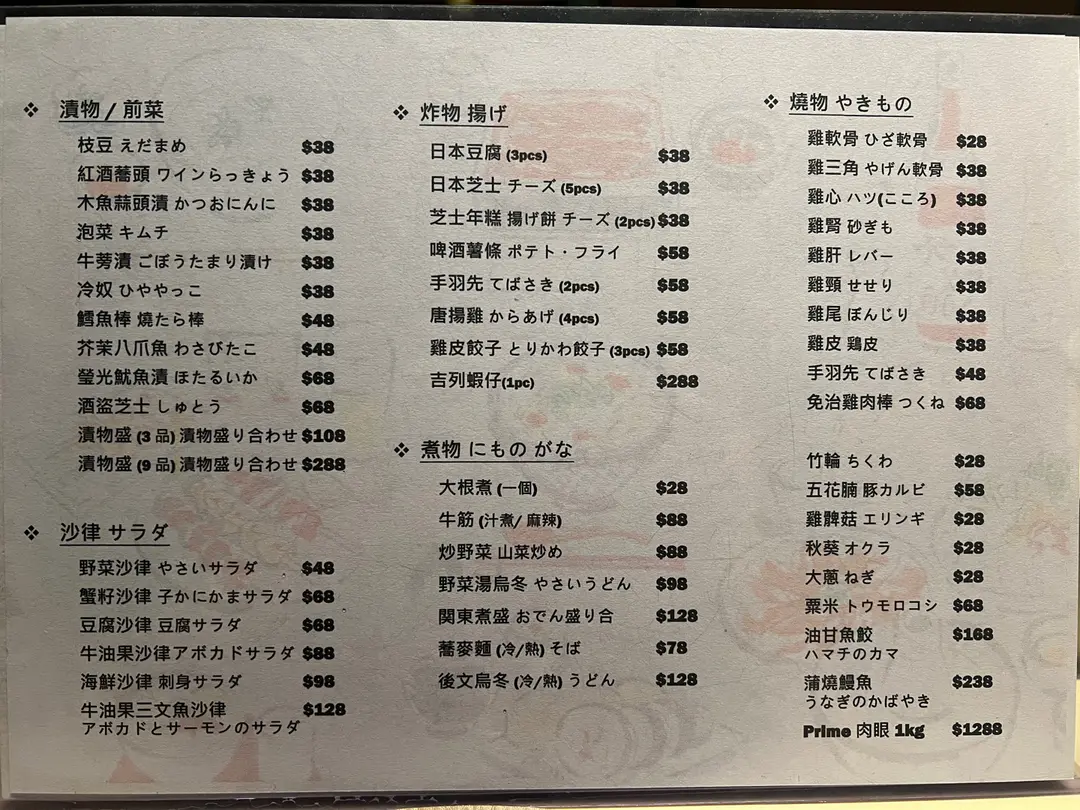 ❖ 漬物 / 前菜
枝豆 えだまめ $38
紅酒蕎頭 ワインらっきょう $38
木魚蒜頭漬 かつおにんに $38
泡菜 キムチ $38
牛蒡漬 ごぼうたまり漬け $38
冷奴 ひややっこ $38
鱈魚棒 燒たら棒 $48
芥茉八爪魚 わさびたこ $48
瑩光魷魚漬 ほたるいか $68
酒盜芝士 しゅとう $68
漬物盛 (3 品) 漬物盛り合わせ $108
漬物盛 (9 品) 漬物盛り合わせ $288
❖ 沙律 サラダ
野菜沙律 やさいサラダ $48
蟹籽沙律 子かにかまサラダ $68
豆腐沙律 豆腐サラダ $68
牛油果沙律アボカドサラダ $88
海鮮沙律 刺身サラダ $98
牛油果三文魚沙律 $128
アボカドとサーモンのサラダ
❖ 炸物 揚げ
日本豆腐 (3pcs) $38
日本芝士 チーズ (5pcs) $38
芝士年糕 揚げ餅 チーズ (2pcs) $38
啤酒薯條 ポテト・フライ $58
手羽先 てばさき (2pcs) $58
唐揚雞 からあげ (4pcs) $58
雞皮餃子 とりかわ餃子 (3pcs) $58
吉列蝦仔(1pc) $288
❖ 煮物 にもの がな
大根煮 (一個) $28
牛筋 (汁煮/ 麻辣) $88
炒野菜 山菜炒め $88
野菜湯烏冬 やさいうどん $98
関東煮盛 おでん盛り合 $128
蕎麥麵 (冷/熱) そば $78
後文烏冬 (冷/熱) うどん $128
❖ 燒物 やきもの
雞軟骨 ひざ軟骨 $28
雞三角 やげん軟骨 $38
雞心 ハツ(こころ) $38
雞腎 砂ぎも $38
雞肝 レバー $38
雞頸 せせり $38
雞尾 ぼんじり $38
雞皮 鶏皮 $38
手羽先 てばさき $48
免治雞肉棒 つくね $68
竹輪 ちくわ $28
五花腩 豚カルビ $58
雞髀菇 エリンギ $28
秋葵 オクラ $28
大蔥 ねぎ $28
粟米 トウモロコシ $68
油甘魚鮫 $168
ハマチのカマ
蒲燒鰻魚 $238
うなぎのかばやき
Prime 肉眼 1kg $1288